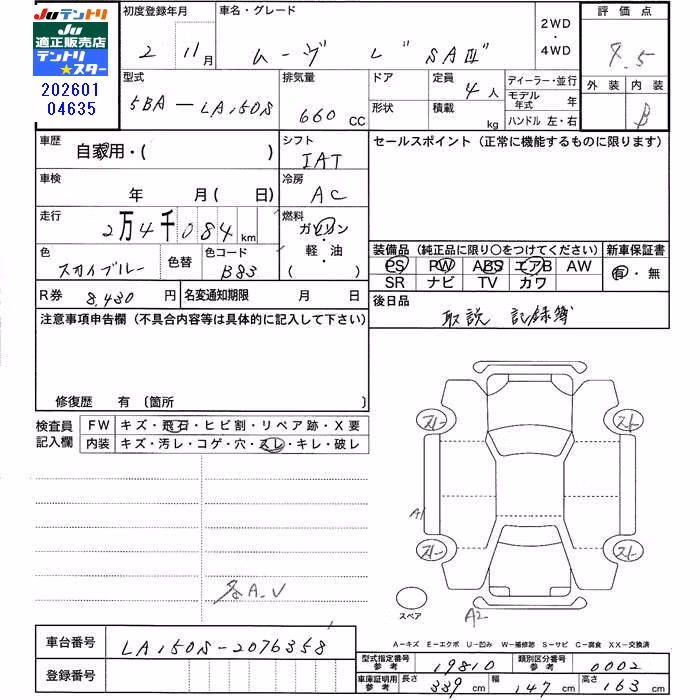 Juテントリ
Ju
適正販売店
テントリ
★スター
202601
04635
初度登録年月
2 11月
車名・グレード
ムーヴ L "SAⅢ"
2WD
・
4WD
評価点
外装 内装
B
型式
5BA-LA150S
排気量
660 CC
ドア
形状
定員
4人
積載
kg
ディーラー・並行
モデル年式 年
ハンドル 左・右
車歴
自家用・( )
シフト
IAT
セールスポイント(正常に機能するものに限ります)
車検
年 月( 日)
冷房
AC
走行
2万4千084km
燃料
ガソリン
・
軽・油
( )
色
スカイブルー
色替
色コード
B83
装備品(純正品に限り○をつけてください)
新車保証書
PS PW ABS エアB AW
SR ナビ TV カワ
有・無
R券 8,430 円
名変通知期限 月 日
後日品
取説 記録簿
注意事項申告欄(不具合内容等は具体的に記入して下さい)
修復歴 有〔箇所 〕
検査員
記入欄
FW キズ・飛石・ヒビ割・リペア跡・X要
内装 キズ・汚レ・コゲ・穴・スレ・キレ・破レ
スト
スト
A1
スト
スト
各A.U
スペア
A2
A-キズ E-エクボ U-凹み W-補修跡 S-サビ C-腐食 XX-交換済
車台番号 LA150S-2076358
登録番号
型式指定番号
参考
19810
類別区分番号
参考
0002
車庫証明用
参考
長さ 339 cm
幅 147 cm
高さ 163 cm